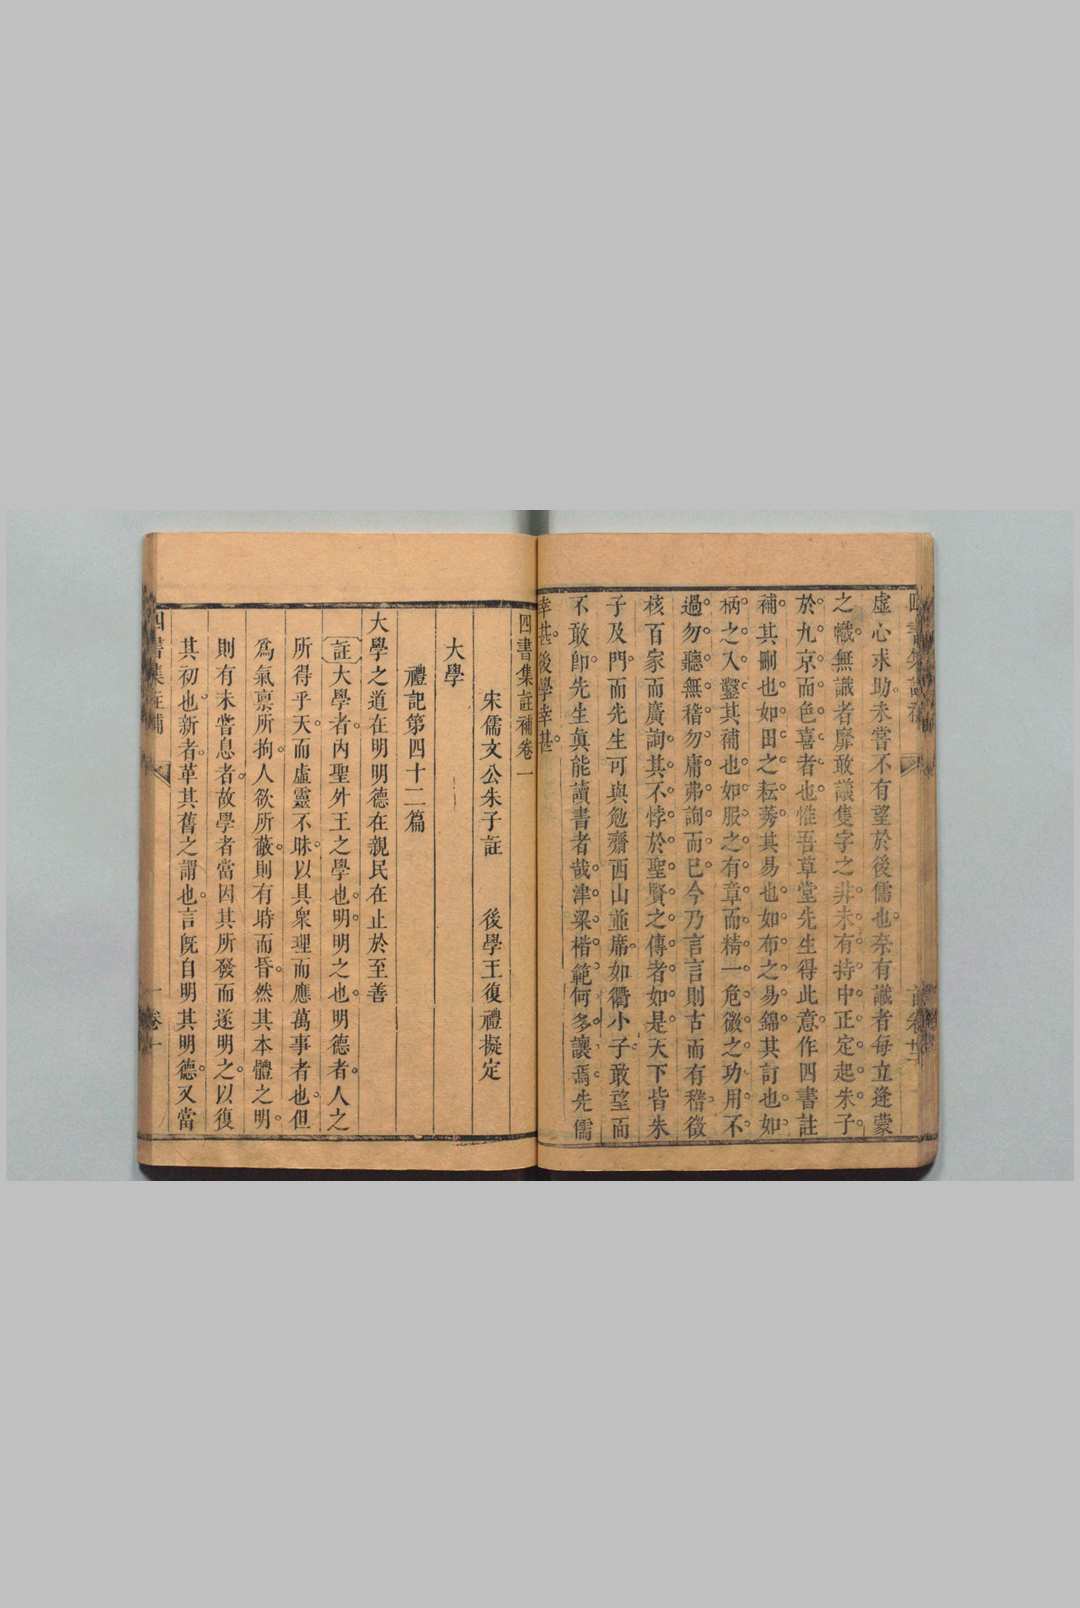 虛心求助未嘗不有望於後儒也奈有識者每立逢蒙
之幟無識者靡敢議隻字之非未有持中正定起朱子
於九京而色喜者也惟吾草堂先生得此意作四書註
補其刪也如田之耘莠其易也如布之易錦其訂也如
柄之入鑿其補也如服之有章而精一危微之功用不
過勿聽無稽勿庸弗詢而已今乃言言則古而有稽徵
核百家而廣詢其不悖於聖賢之傳者如是天下皆朱
子及門而先生可與勉齋西山並席如衢小子敢望而
不敢卽先生眞能讀書者哉津梁楷範何多讓焉先儒
幸甚後學幸甚
四書集註補卷一
宋儒文公朱子註 後學王復禮擬定
大學
禮記第四十二篇
大學之道在明明德在親民在止於至善
註大學者內聖外王之學也明明之也明德者人之
所得乎天而虛靈不昧以具衆理而應萬事者也但
爲氣禀所拘人欲所蔽則有時而昏然其本體之明
則有未嘗息者故學者當因其所發而遂明之以復
其初也新者革其舊之謂也言旣自明其明德又當
四書集註補 卷一 一